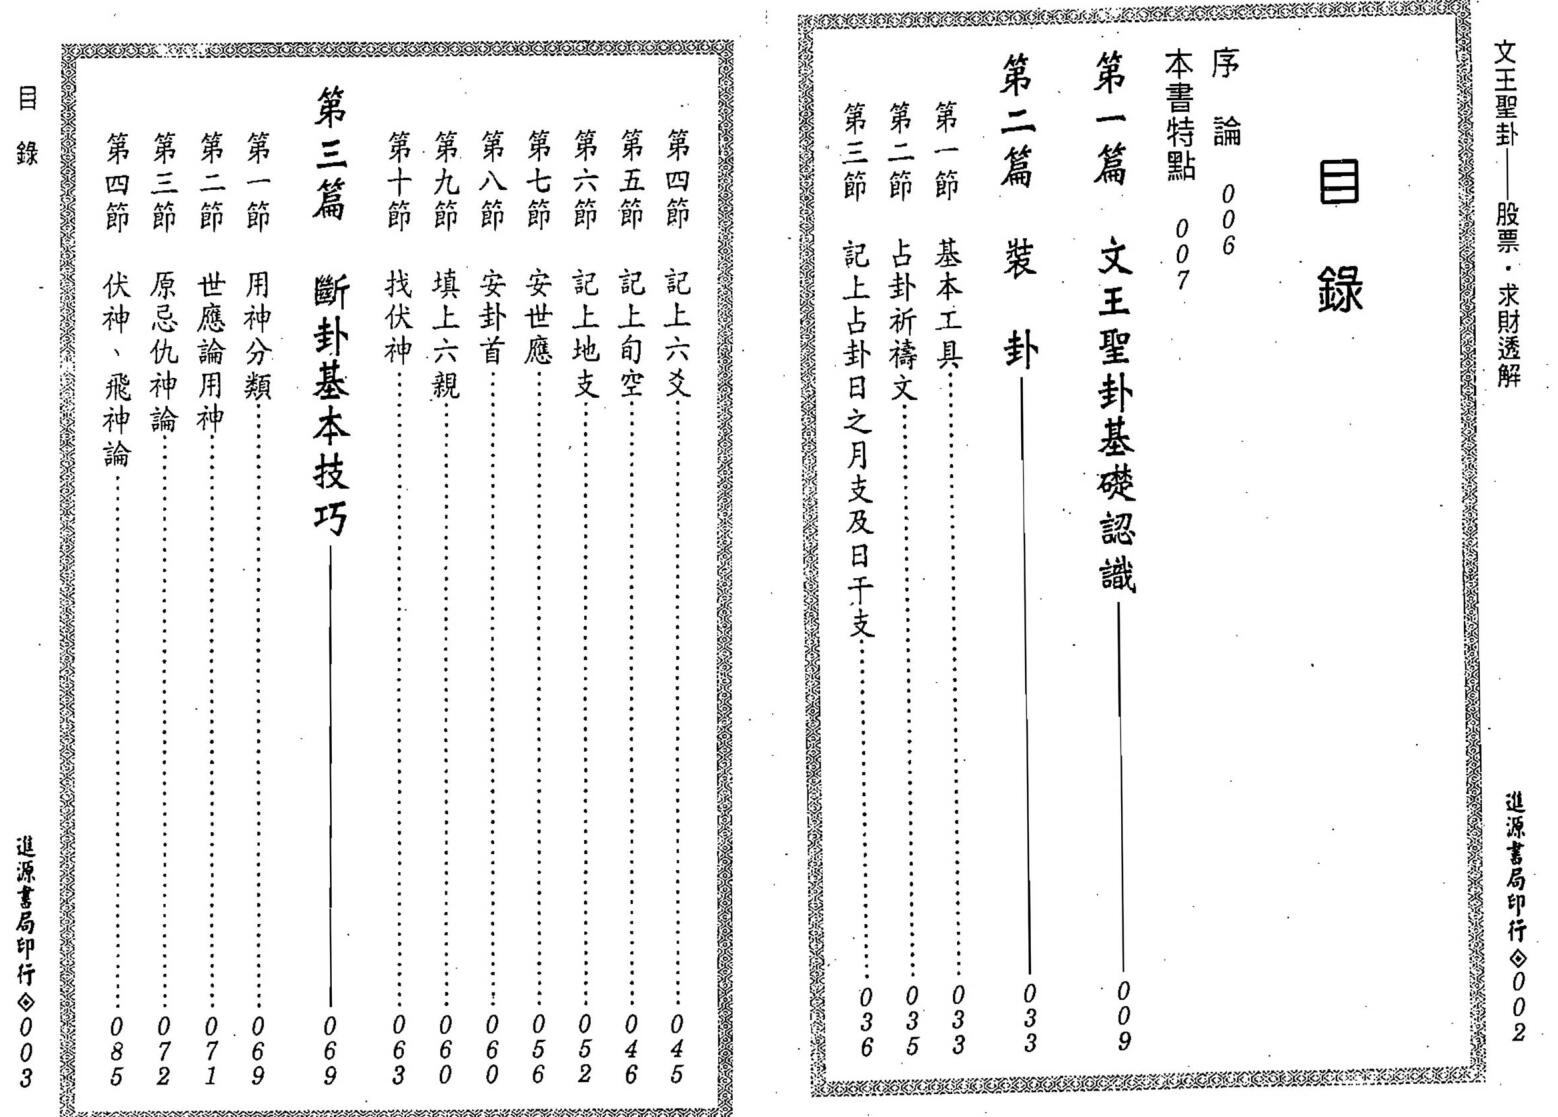 文王聖卦──股票・求財透解
進源書局印行◈002
目錄
序論 006
本書特點 007
第一篇 文王聖卦基礎認識 009
第二篇 裝卦 033
第一節 基本工具 033
第二節 占卦祈禱文 035
第三節 記上占卦日之月支及日干支 036
第四節 記上六爻 045
第五節 記上旬空 046
第六節 記上地支 052
第七節 安世應 056
第八節 安卦首 060
第九節 填上六親 060
第十節 找伏神 063
第三篇 斷卦基本技巧 069
第一節 用神分類 069
第二節 世應論用神 071
第三節 原忌仇神論 072
第四節 伏神、飛神論 085
目錄
進源書局印行◈003